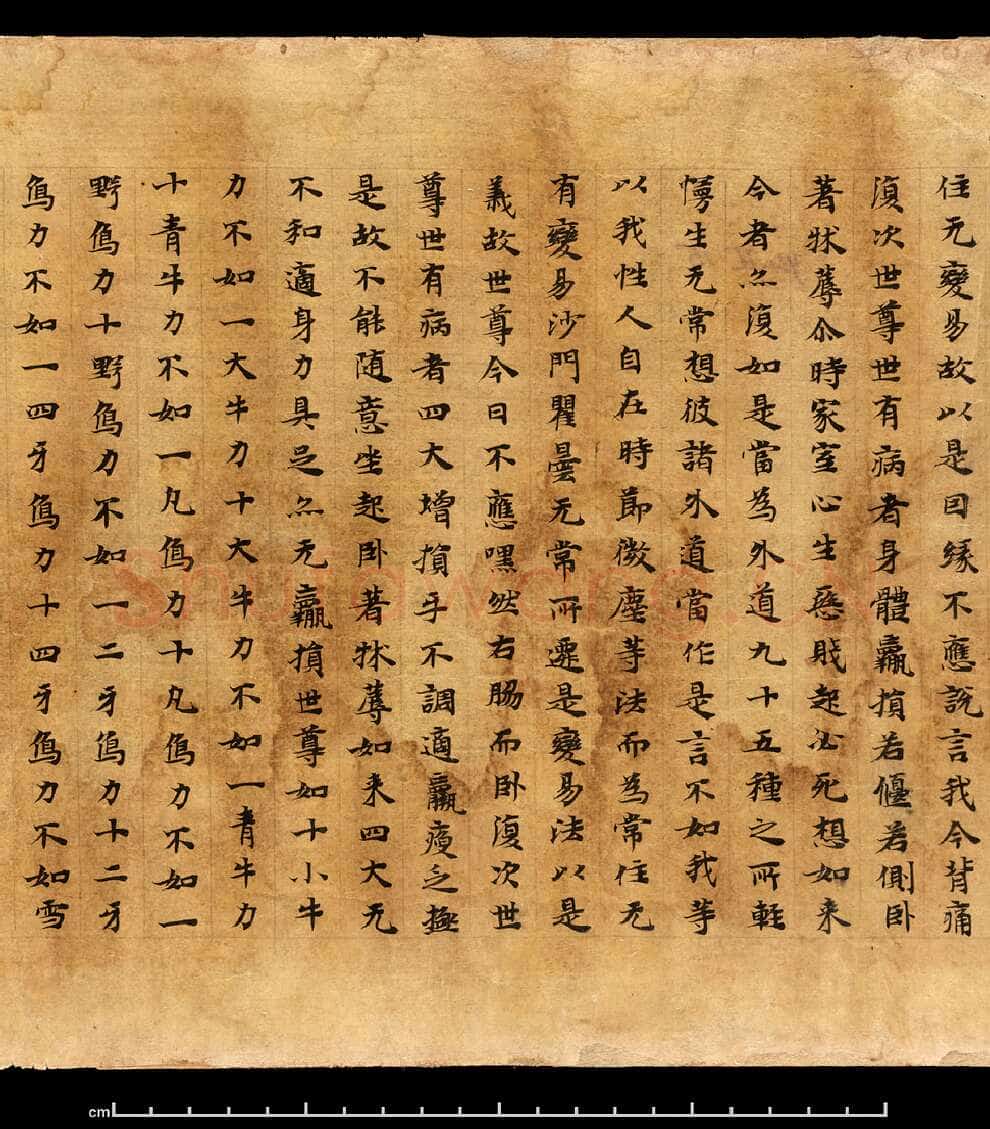 住无變易故以是因緣不應說言我今背痛
復次世尊世有病者身體羸損若偃若側卧
著牀蓐尒時家室心生惡賤起必死想如来
今者亦復如是當為外道九十五種之所輕
慢生无常想彼諸外道當作是言不如我等
以我性人自在時節微塵等法而為常住无
有變易沙門瞿曇无常所遷是變易法以是
義故世尊今日不應嘿然右脇而卧復次世
尊世有病者四大增損乎不調適羸瘦乏極
是故不能随意坐起卧著牀蓐如来四大无
不和適身力具足亦无羸損世尊如十小牛
力不如一大牛力十大牛力不如一青牛力
十青牛力不如一凡鳥力十凡鳥力不如一
野鳥力十野鳥力不如一二牙鳥力十二牙
鳥力不如一四牙鳥力十四牙鳥力不如雪
cm